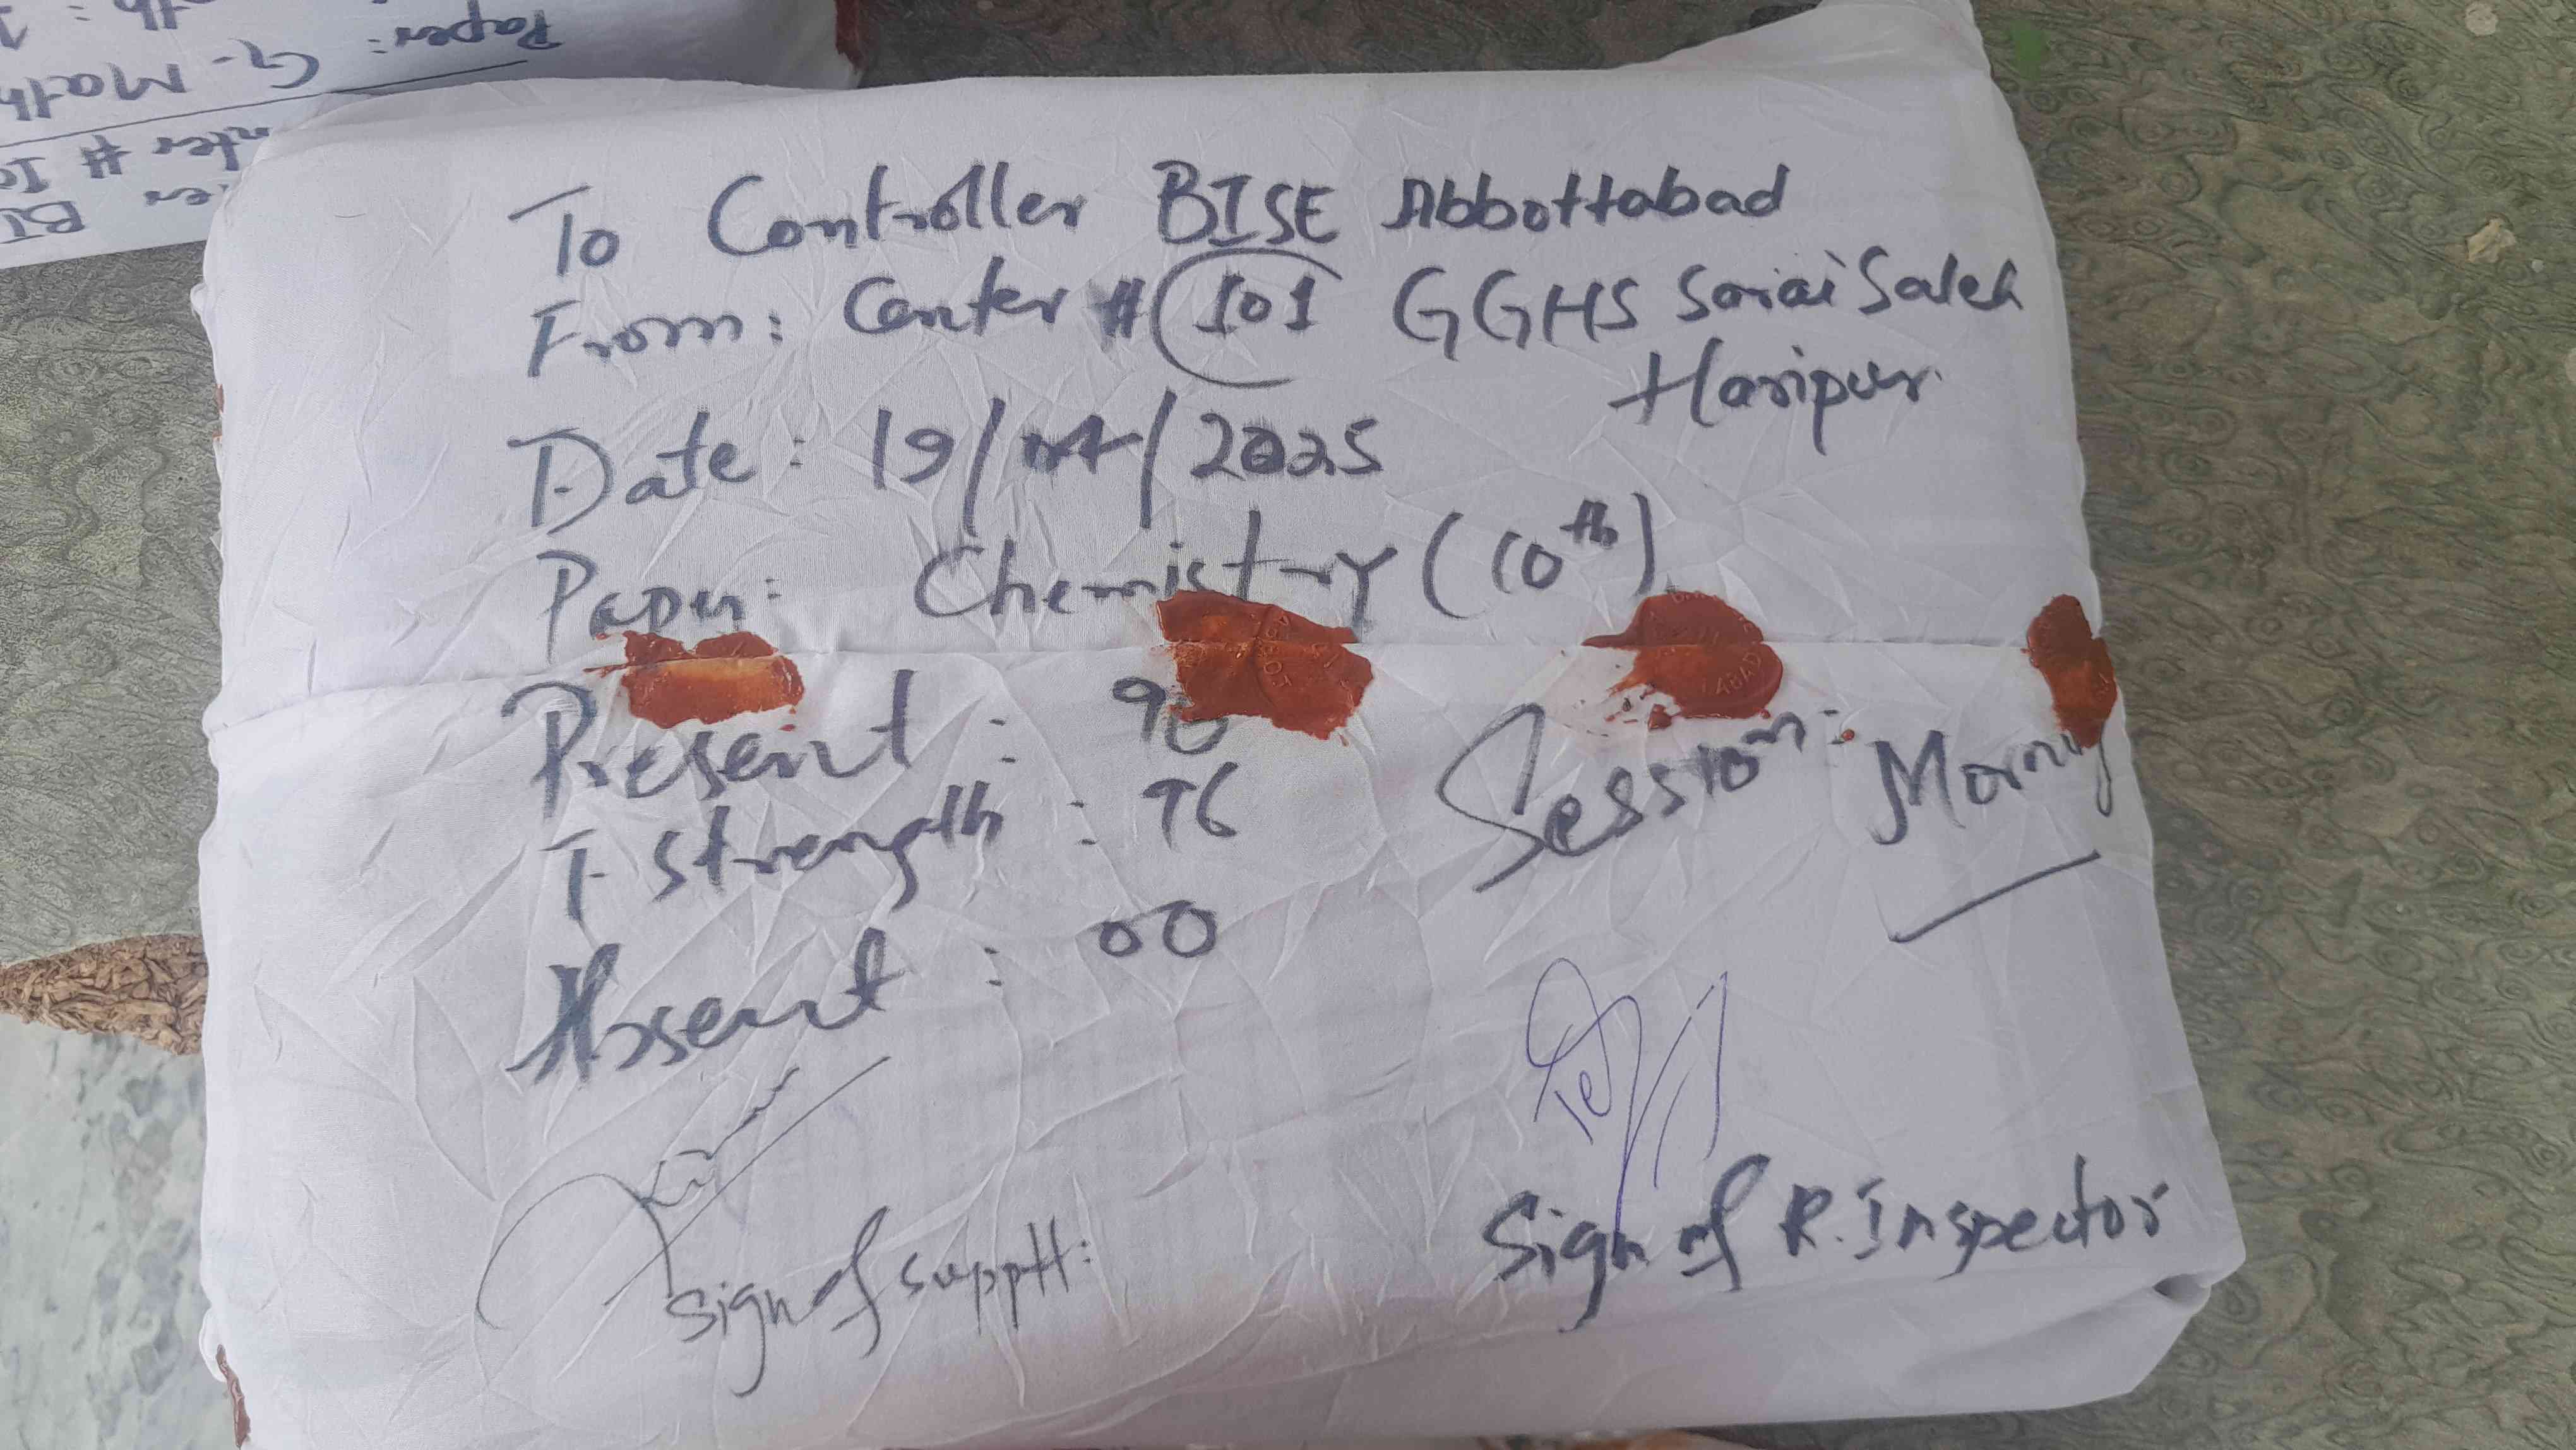 To Controller BISE Abbottabad
From: Center # 101 GGHS Sarai Saleh
Haripur.
Date: 19/04/2025
Paper: Chemistry (10th)
Present : 96
Session: Morning
T. Strength : 96
Absent : 00
Sign of Suptt:
Sign of R. Inspector
Paper: G. Math
Center # 10
BI